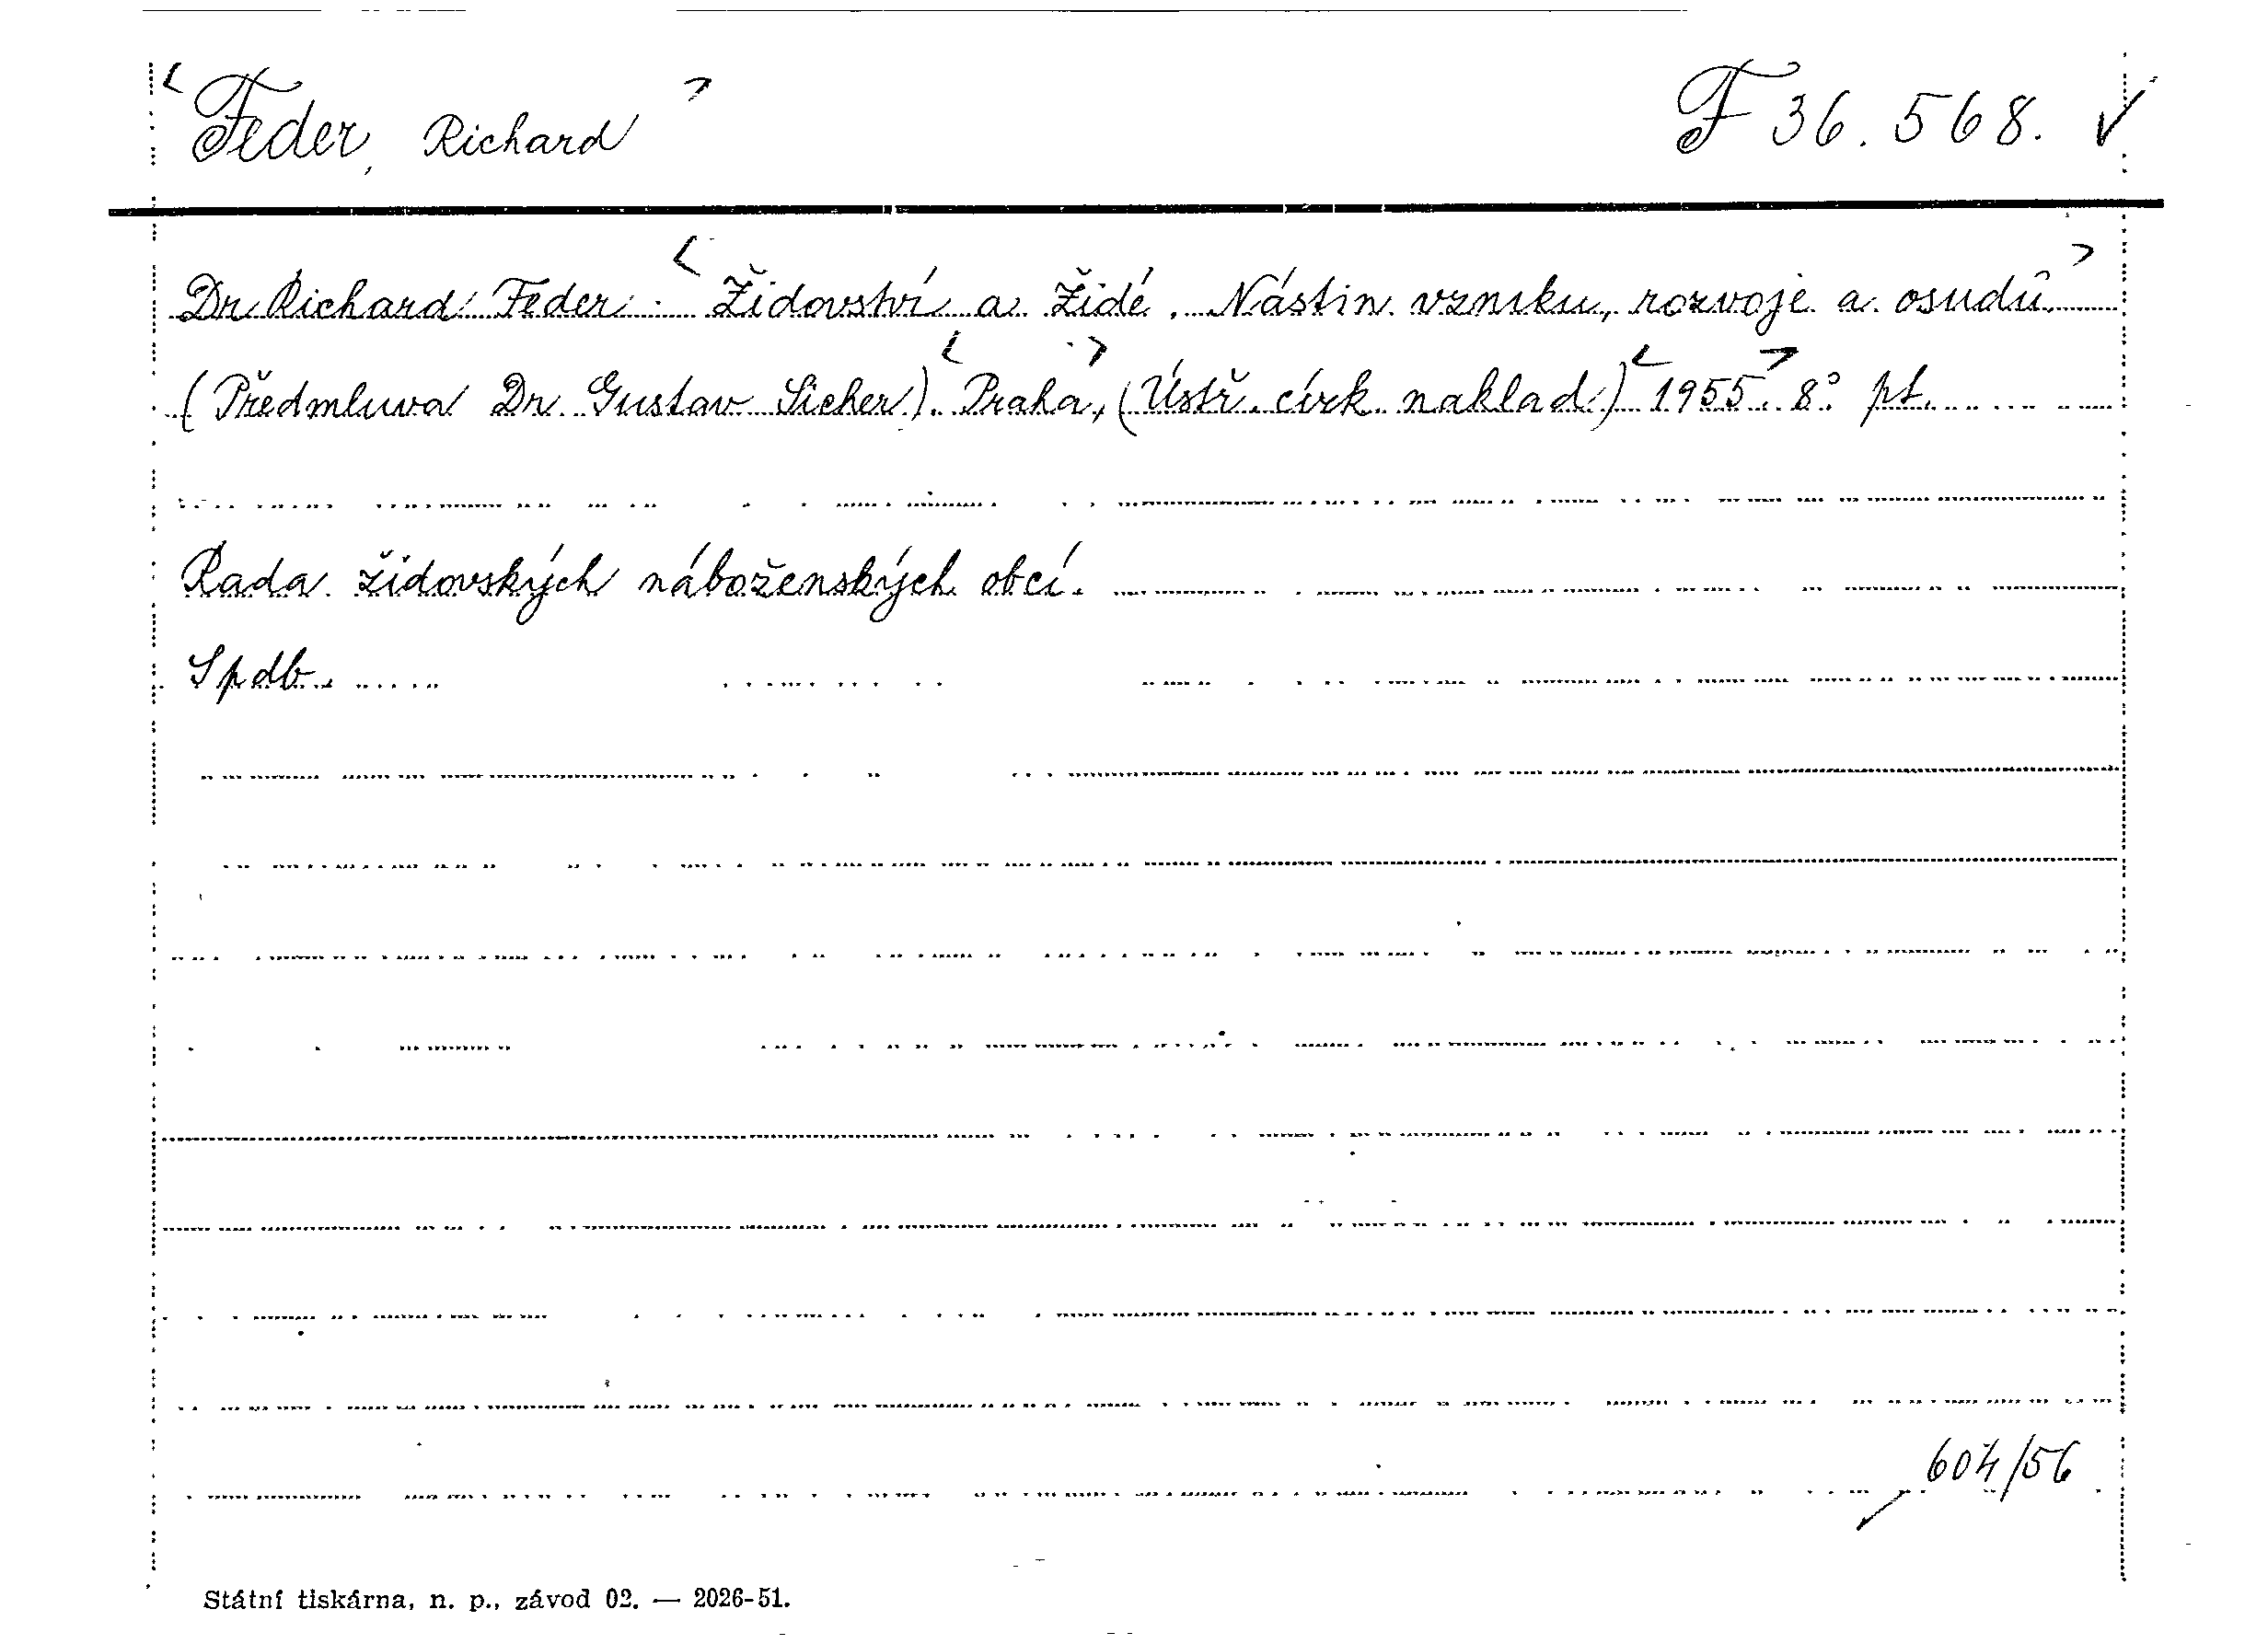 < Feder, Richard > F 36.568. ✓
Dr Richard Feder: < Židovství a Židé. Nástin vzniku, rozvoje a osudů. >
(Předmluva Dr. Gustav Sicher). < Praha, > (Ústř. círk. naklad.) < 1955. > 8° pt.
Rada židovských náboženských obcí.
Spdb.
604/56
Státní tiskárna, n. p., závod 02. — 2026-51.